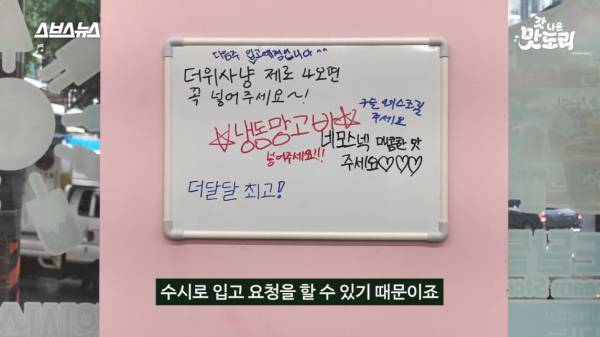 스브스뉴스
갓 나온
맛도리
다음주 입고예정입니다 ^^
더위사냥 제로 4오면
꼭 넣어주세요~!
주세요
☆냉동망고바☆
넣어주세요!!!
네모스넥 매콤한 맛
주세요♡♡♡
더달달 최고!
수시로 입고 요청을 할 수 있기 때문이죠